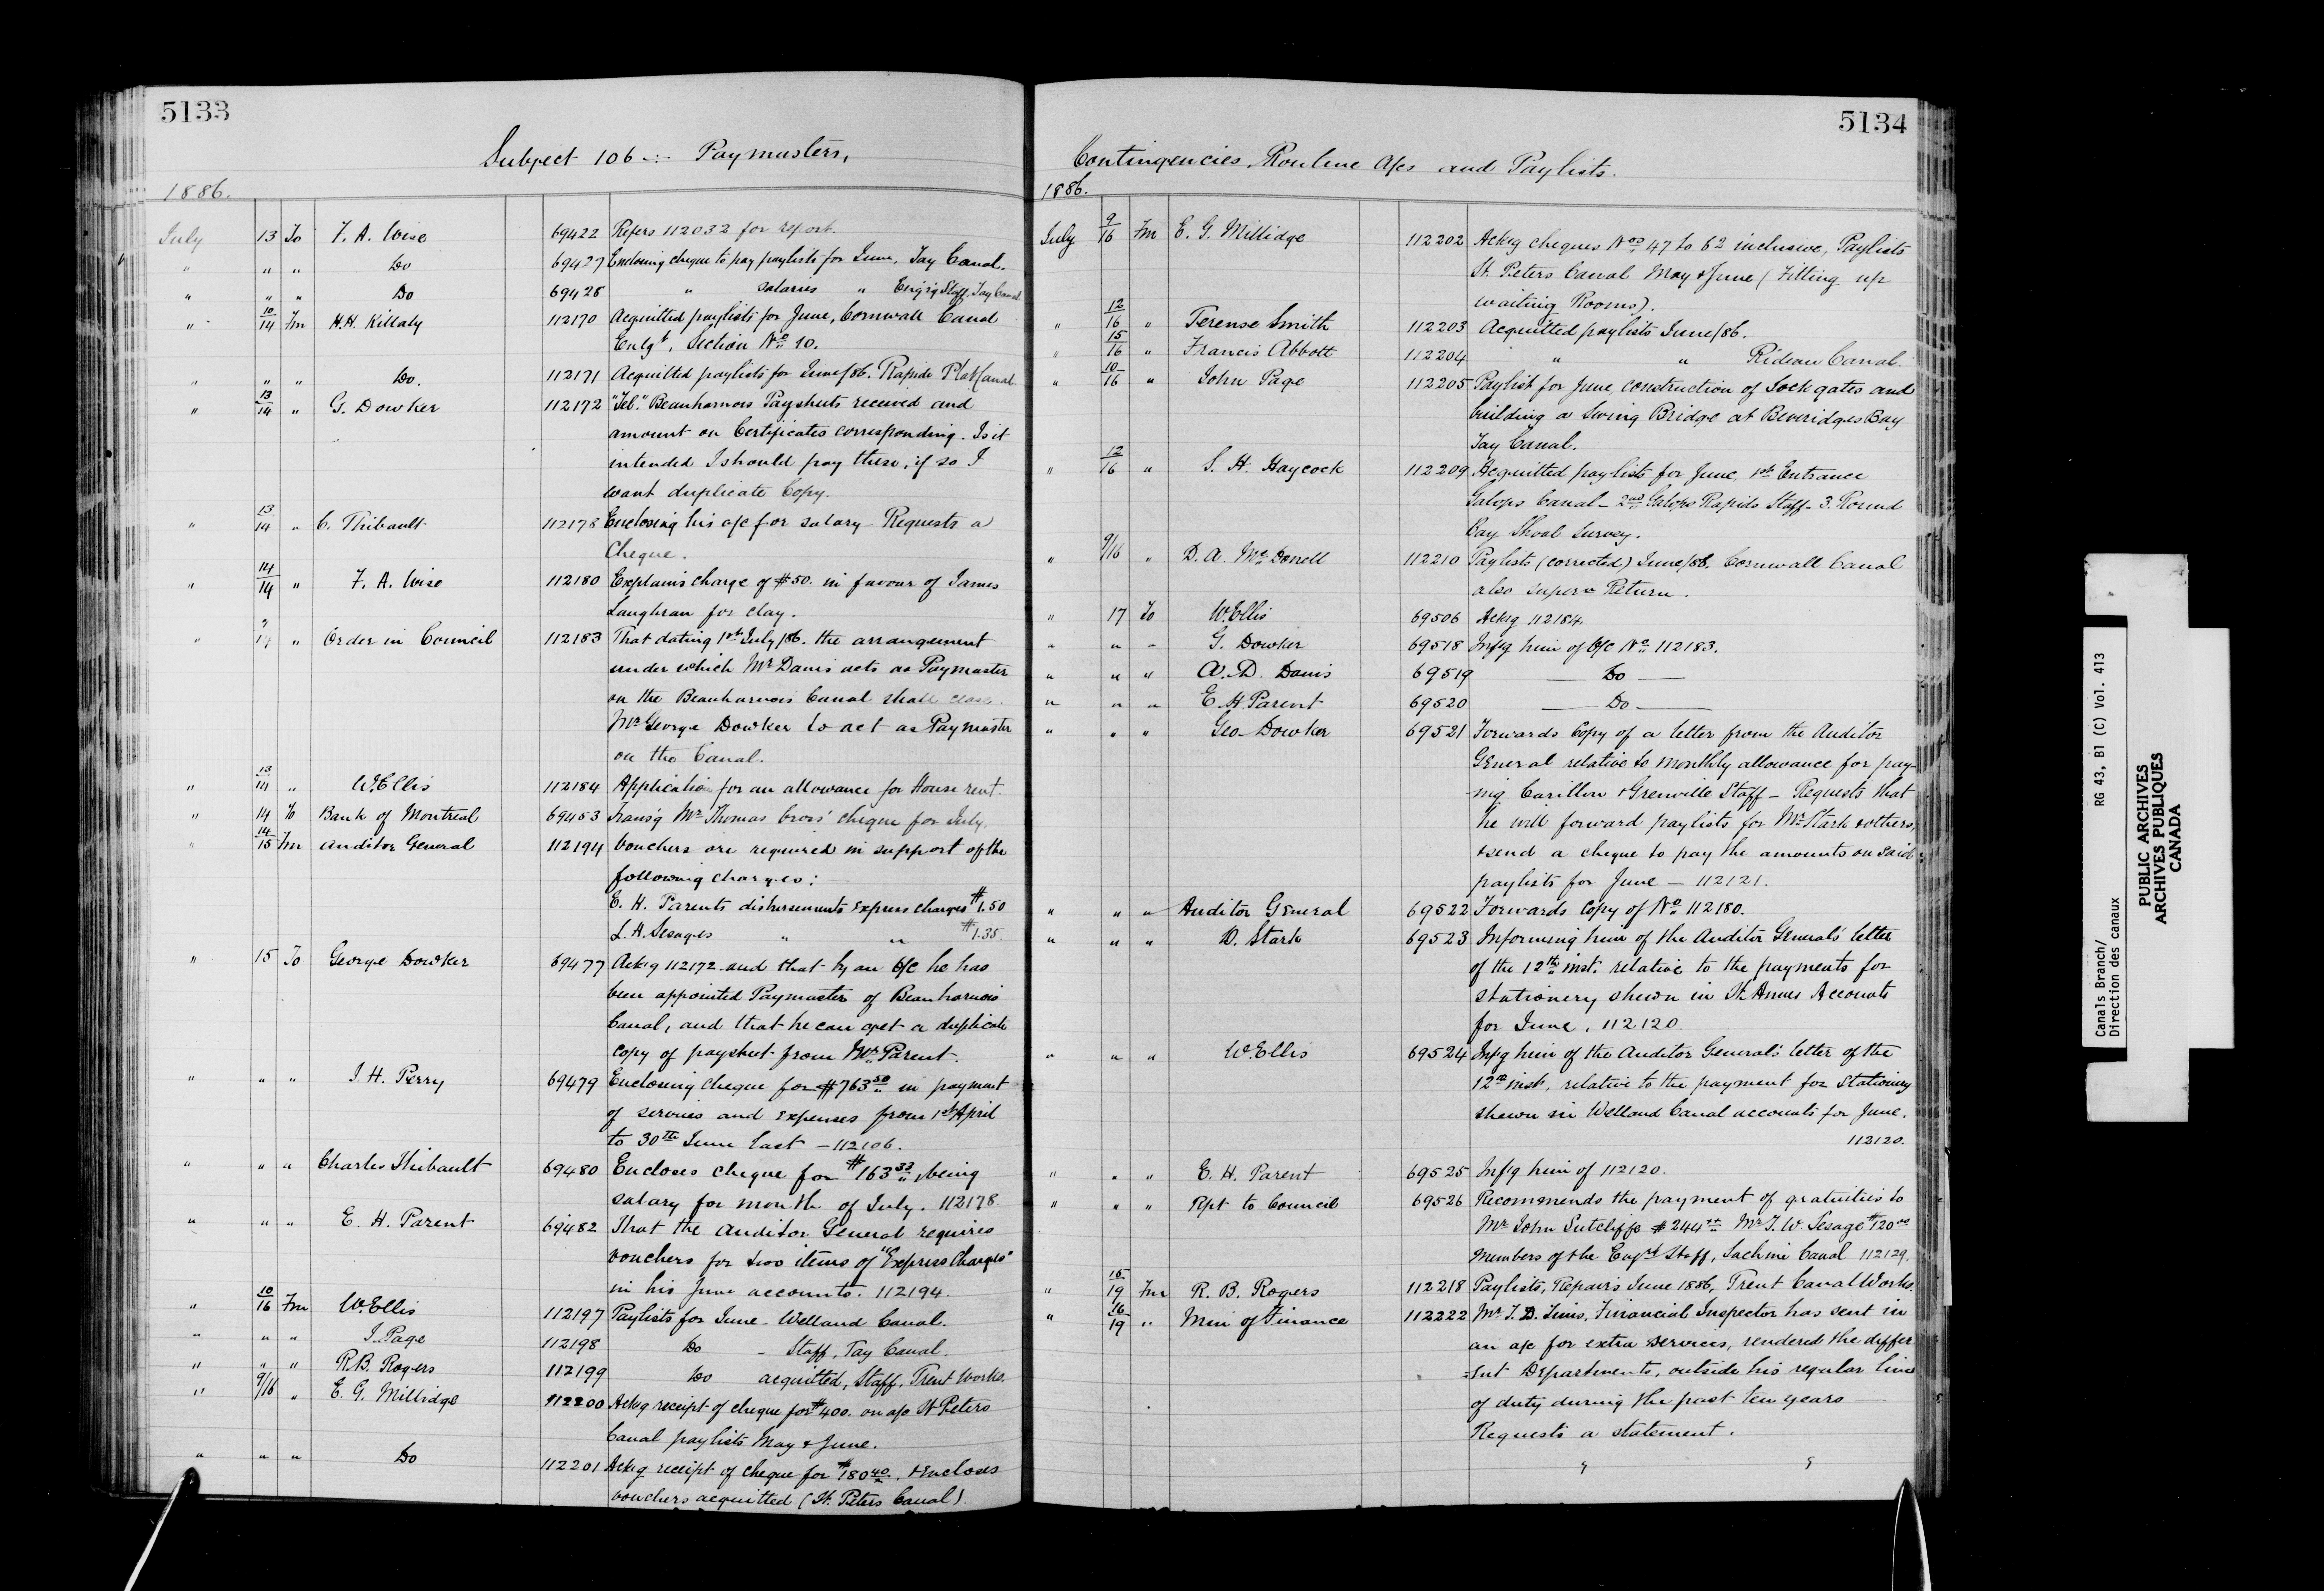 5133
Subject 106 -:- Paymasters,
1886.
July 13 To F. A. Wise 69422 Refers 112032 for report.
" " " Do 69427 Enclosing cheque to pay paylists for June, Tay Canal.
" " " Do 69428 " salaries " Eng'rg Staff, Tay Canal
" 10/14 Fm H.H. Killaly 112170 Acquitted paylists for June, Cornwall Canal
Enlgt, Section No 10.
" " " Do. 112171 Acquitted paylists for June/86. Rapide Plat Canal
" 13/14 " G. Dowker 112172 "Tel." Beauharnois Paysheets received and
amount on Certificates corresponding. Is it
intended I should pay these, if so I
want duplicate Copy.
" 13/14 " C. Thibault 112178 Enclosing his a/c for salary - Requests a
Cheque.
" 14/14 " F. A. Wise 112180 Explains charge of $50. in favour of James
Laughran for clay.
" " Order in Council 112183 That dating 1st July/86. the arrangement
under which Mr Davis acts as Paymaster
on the Beauharnois Canal shall close.
Mr George Dowker to act as Paymaster
on the Canal.
" 13/14 " W. Ellis 112184 Application for an allowance for House rent.
" 14 To Bank of Montreal 69453 Transg Mr Thomas cheque for July.
" 14/15 Fm Auditor General 112194 Vouchers are required in support of the
following charges:
E. H. Parents disbursements Express charges $1.50
L. H. Lesages " " $1.35.
" 15 To George Dowker 69477 Ackg 112172 and that by an O/C he has
been appointed Paymaster of Beauharnois
Canal, and that he can get a duplicate
copy of paysheet from Mr Parent.
" " " J. H. Perry 69479 Enclosing cheque for $763 50 in payment
of services and expenses from 1st April
to 30th June last - 112106.
" " " Charles Thibault 69480 Encloses cheque for $163 33, being
salary for month of July. 112178.
" " " E. H. Parent 69482 That the Auditor General requires
vouchers for two items of "Express Charges"
in his June accounts. 112194.
" 10/16 Fm W. Ellis 112197 Paylists for June - Welland Canal.
" " " J. Page 112198 Do - Staff, Tay Canal.
" " " R.B. Rogers 112199 Do acquitted, Staff, Trent Works.
" 9/16 " E. G. Millidge 112200 Ackg receipt of cheque for $400. on a/c St Peters
Canal paylists May & June.
" " " Do 112201 Ackg receipt of cheque for $180 40, & encloses
vouchers acquitted (St. Peters Canal).
5134
Contingencies, Routine A/cs and Paylists.
1886.
July 9/16 Fm E. G. Millidge 112202 Ackg cheques Nos 47 to 62 inclusive, Paylists
St. Peters Canal May & June (Fitting up
waiting Rooms).
" 12/16 " Terense Smith 112203 Acquitted paylists June/86.
" 15/16 " Francis Abbott 112204 " " Rideau Canal.
" 10/16 " John Page 112205 Paylist for June, construction of Lock gates and
building a Swing Bridge at Beveridges Bay
Tay Canal.
" 12/16 " S. H. Haycock 112209 Acquitted paylists for June, 1st Entrance
Galops Canal - 2nd Galops Rapids Staff - 3. Round
Bay Shoal Survey.
" 9/16 " D. A. McDonell 112210 Paylists (corrected) June/86. Cornwall Canal
also Superan Return.
" 17 To W. Ellis 69506 Ackg 112184.
" " " G. Dowker 69518 Infg him of O/C No 112183.
" " " A. D. Davis 69519 — Do —
" " " E. H. Parent 69520 — Do —
" " " Geo. Dowker 69521 Forwards Copy of a letter from the Auditor
General relative to monthly allowance for pay-
-ing Carillon & Grenville Staff - Requests that
he will forward paylists for Mr Stark & others,
& send a cheque to pay the amounts on said
paylists for June - 112121.
" " " Auditor General 69522 Forwards Copy of No 112180.
" " " D. Stark 69523 Informing him of the Auditor General's letter
of the 12th inst. relative to the payments for
stationery shewn in St. Annes Accounts
for June. 112120.
" " " W. Ellis 69524 Infg him of the Auditor General's letter of the
12th inst, relative to the payment for Stationery
shewn in Welland Canal accounts for June.
112120.
" " " E. H. Parent 69525 Infg him of 112120.
" " " Rpt to Council 69526 Recommends the payment of gratuities to
Mr John Sutcliffe $244 Mr J. W. Lesage $120 00
members of the Engrg Staff, Lachine Canal 112129.
" 15/19 Fm R. B. Rogers 112218 Paylists, Repairs June 1886, Trent Canal Works.
" 16/19 " Min of Finance 112222 Mr T. D. Tims, Financial Inspector has sent in
an a/c for extra services, rendered the differ
=ent Departments, outside his regular line
of duty during the past ten years —
Requests a statement.
Canals Branch/ RG 43, B1 (C) Vol. 413
Direction des canaux
PUBLIC ARCHIVES
ARCHIVES PUBLIQUES
CANADA